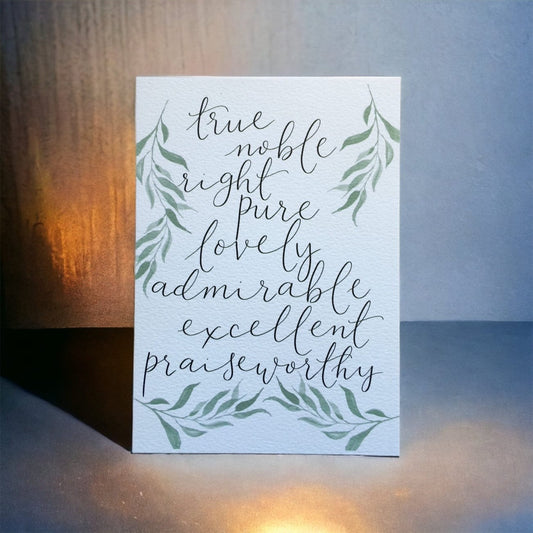 true
noble
right
pure
lovely
admirable
excellent
praiseworthy